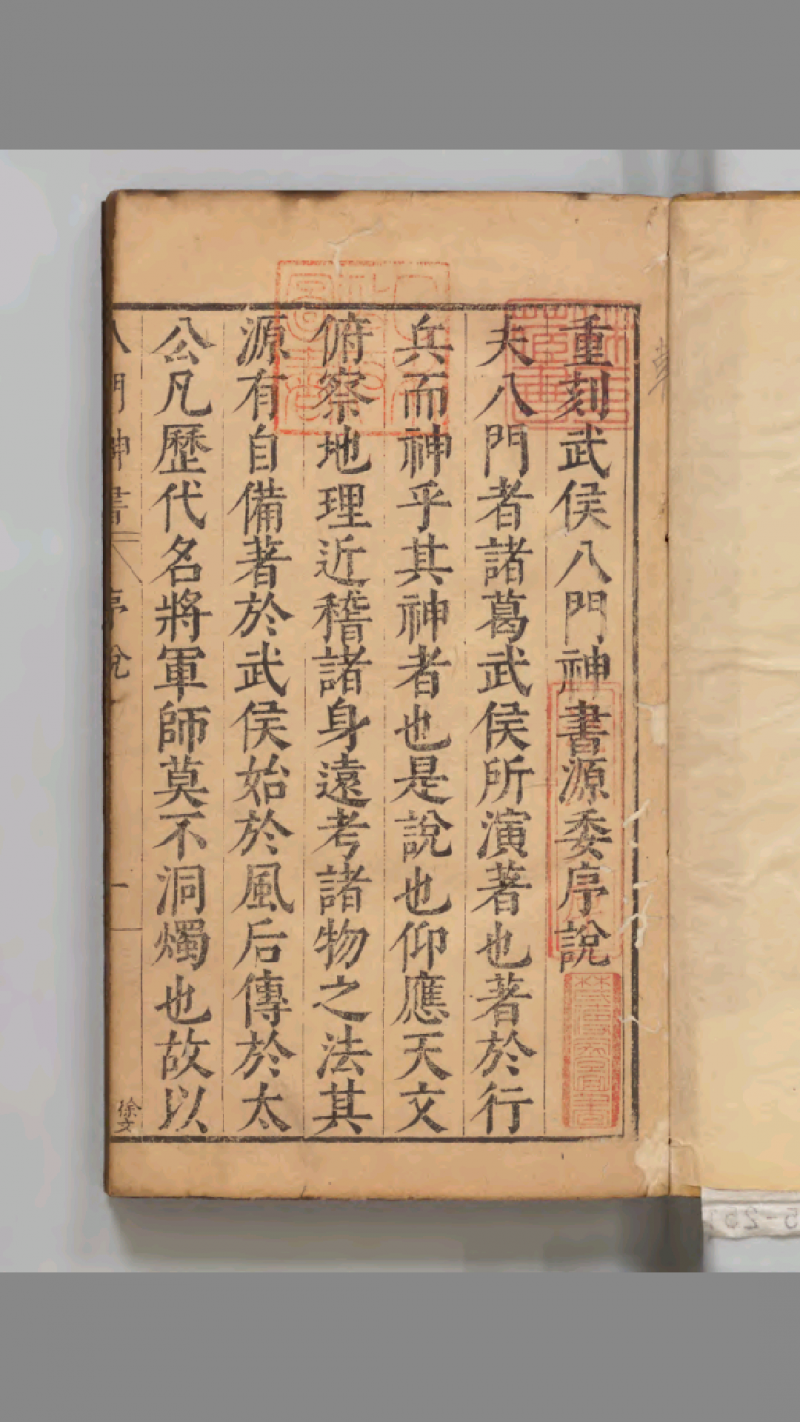 重刻武侯八門神書源委序說
夫八門者諸葛武侯所演著也著於行
兵而神乎其神者也是說也仰應天文
俯察地理近稽諸身遠考諸物之法其
源有自備著於武侯始於風后傳於太
公凡歷代名將軍師莫不洞燭也故以
八門神書 序說 一
徐文